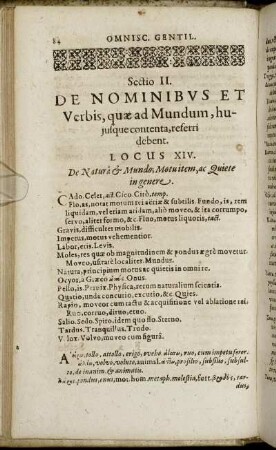 84 OMNISC. GENTIL.
Sectio II.
DE NOMINIBVS ET
Verbis, quæ ad Mundum, hu-
jusque contenta, referri
debent.
LOCUS XIV.
De Naturâ & Mundo, Motu item, ac Quiete
in genere.
CAdo. Celer, Cico. Ciro,
Flo, as, notat motum rei aëriæ & subtilis. Fundo, is, rem
liquidam, vel etiam aridam, aliò moveo, & ita corrumpo,
servo, alitet formo, &c. Fluo, motus liquotis,
Gravis, difficulter mobilis.
Impetus, motus vehementior.
Labor, eris. Levis.
Moles, res quæ ob magnitudinem & pondus ægrè movetur.
Moveo, usurat localiter. Mundus.
Natura, principium motus ac quietis in omni re.
Ocyor, à Græco Onus.
Pello, is. Physica, rerum naturalium scientia.
Quatio, unde concutio, excutio, &c. Quies.
Rapio, moveor cum tactu & acquisitione vel ablatione rei
Ruo, corruo, diruo, etno.
Salio. Sedo. Spiro, idem quo flo. Sterno.
Tardus. Tranquillus. Trado.
Velox. Volvo, moveo cum figura.
tollo, attollo, erigo, ruo, cum impetu feror.
volvo, voluto, animal. prosilio, subsilio, subsul-
to, de inanim. & animatis.
pondus, onus, mor. hom. metaph. molestia,